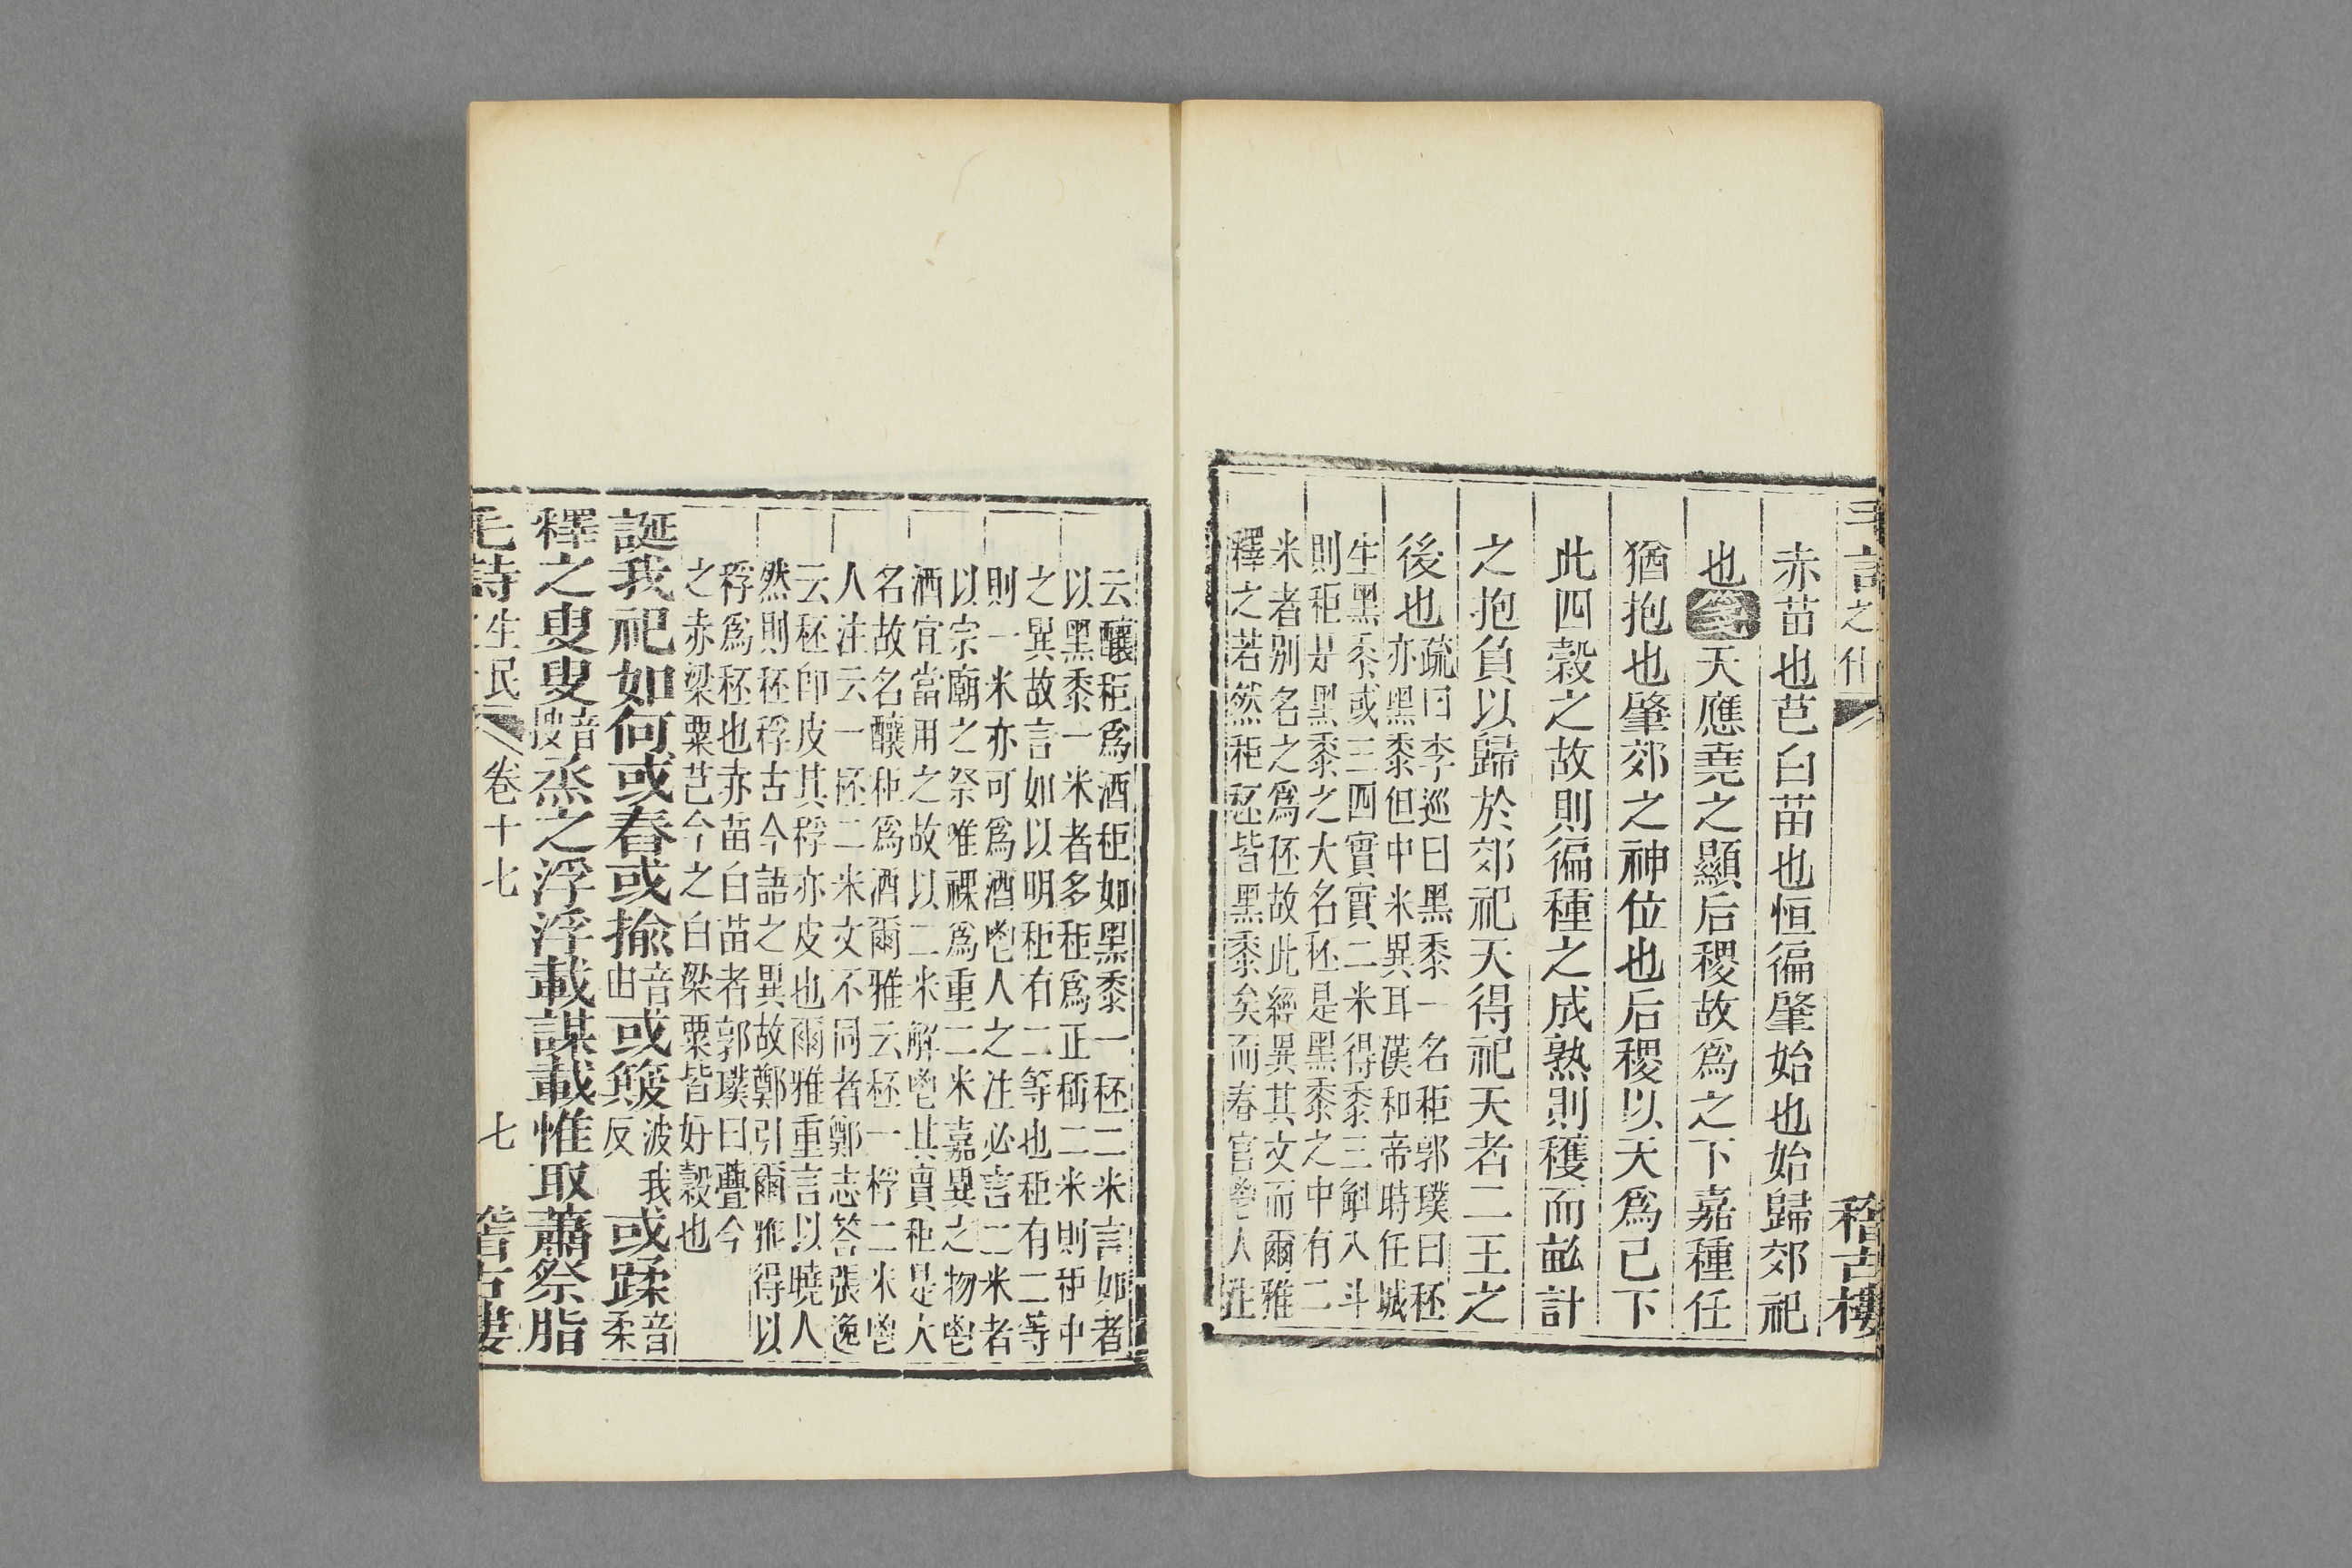 赤苗也芑白苗也恒徧肇始也始歸郊祀
也箋天應堯之顯后稷故爲之下嘉種任
猶抱也肇郊之神位也后稷以天爲己下
此四穀之故則徧種之成熟則穫而畝計
之抱負以歸於郊祀天得祀天者二王之
後也
疏曰李巡曰黑黍一名秬郭璞曰秠
亦黑黍但中米異耳漢和帝時任城
生黑黍或三四實實二米得黍三斛八斗
則秬是黑黍之大名秠是黑黍之中有二
米者别名之爲秠故此經異其文而爾雅
釋之若然秬秠皆黑黍矣而春官鬯人注
云釀秬爲酒秬如黑黍一秠二米言如者
以黑黍一米者多秬爲正稱二米則秬中
之異故言如以明秬有二等也秬有二等
則一米亦可爲酒鬯人之注必言二米者
以宗廟之祭唯祼爲重二米嘉異之物鬯
酒宜當用之故以二米解鬯其實秬是大
名故名釀秬爲酒爾雅云秠一稃二米鬯
人注云一秠二米文不同者鄭志答張逸
云秠卽皮其稃亦皮也爾雅重言以曉人
然則秠稃古今語之異故鄭引爾雅得以
稃爲秠也赤苗白苗者郭璞曰虋今
之赤梁粟芑今之白梁粟皆好穀也
誕我祀如何或舂或揄音由或簸波我反或蹂音柔
釋之叟叟音搜烝之浮浮載謀載惟取蕭祭脂
毛詩 生民 卷十七 七